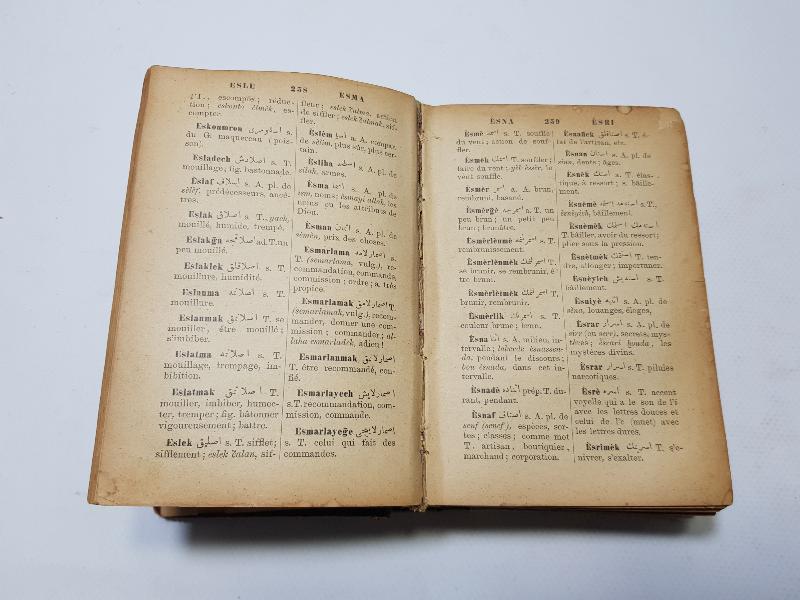 ESLE 258 ESMA
(T., escompte; réduc-
tion; eskonto êlmêk, es-
compter.
Eskoumrou s.
du G. maquereau (pois-
son).
Esladech s. T.
mouillage; fig. bastonnade.
Eslaf s. A. pl. de
sêlêf, prédécesseurs, ancê-
tres.
Eslak s T., yach,
mouillé, humide, trempé.
Eslakğa ad. T. un
peu mouillé.
Eslaklek s. T.
mouillure, humidité.
Eslanma s. T.
mouillure.
Eslanmak T. se
mouiller, être mouillé;
s'imbiber.
Eslatma s. T.
mouillage, trempage, im-
bibition.
Eslatmak T.
mouiller, imbiber, humec-
ter, tremper; fig. bâtonner
vigoureusement; battre.
Eslek s. T. sifflet;
sifflement; eslek čalan, sif-
fleur; eslek čalma, action
de siffler; eslek čalmak, sif-
fler.
Èslèm a. A. compar.
de sêlim, plus sûr, plus cer-
tain.
Èsliha s. A. pl. de
silah, armes.
Èsma s. A. pl. de
ism, noms; èsmayi allah, les
noms ou les attributs de
Dieu.
Èsman s. A. pl. de
sêmên, prix des choses.
Esmarlama s.
T. (semarlama, vulg.), re-
commandation, commande,
commission; ordre; a. très
propice.
Esmarlamak T.
(semarlamak, vulg.), recom-
mander, donner une com-
mission; commander; al-
laha esmarladek, adieu!
Esmarlanmak
T. être recommandé, con-
fié.
Esmarlayech
s. T. recommandation, com-
mission, commande.
Esmarlayeğe
s. T. celui qui fait des
commandes.
ÈSNA 259 ÈSRI
Èsmè s. T. souffle
du vent; action de souf-
fler.
Èsmèk T. souffler;
faire du vent; yèl èssir, le
vent souffle.
Èsmèr a. A. brun,
rembruni, basané.
Èsmèrğè a. T. un
peu brun; un petit peu
brun; brunâtre.
Èsmèrlènmè s. T.
rembrunissement.
Èsmèrlènmèk T.
se brunir, se rembrunir, ê-
tre bruni.
Èsmèrlètmèk T.
brunir, rembrunir.
Èsmèrlik s. T.
couleur brune; brun.
Èsna s. A. milieu, in-
tervalle; lakerde èsnassen-
da, pendant le discours;
bou èsnada, dans cet in-
tervalle.
Èsnadè prép. T. du-
rant, pendant.
Èsnaf s. A. pl. de
senf (senef), espèces, sor-
tes; classes; comme mot
T. artisan, boutiquier,
marchand; corporation.
Èsnaflek s. T. é-
tat de l'artisan, etc.
Èsnan s. A. pl. de
sinn, dents; âges.
Èsnèk s. T. élas-
tique, à ressort; s. bâille-
ment.
Èsnèmè s. T.
bâillement.
Èsnèmèk
T. bâiller, avoir du ressort;
plier sous la pression.
Èsnètmèk T. ten-
dre, allonger; importuner.
Èsnèyich s. T.
bâillement.
Èsniyè s. A. pl. de
sèna, louanges, éloges,
Èsrar s. A. pl. de
sirr (ou serr), secrets, mys-
tères; èsrari houda, les
mystères divins.
Èsrar s. T. pilules
narcotiques.
Èsrè s. T. accent
voyelle qui a le son de l'i
avec les lettres douces et
celui de l'e (muet) avec
les lettres dures.
Èsrimèk T. s'e-
nivrer, s'exalter.